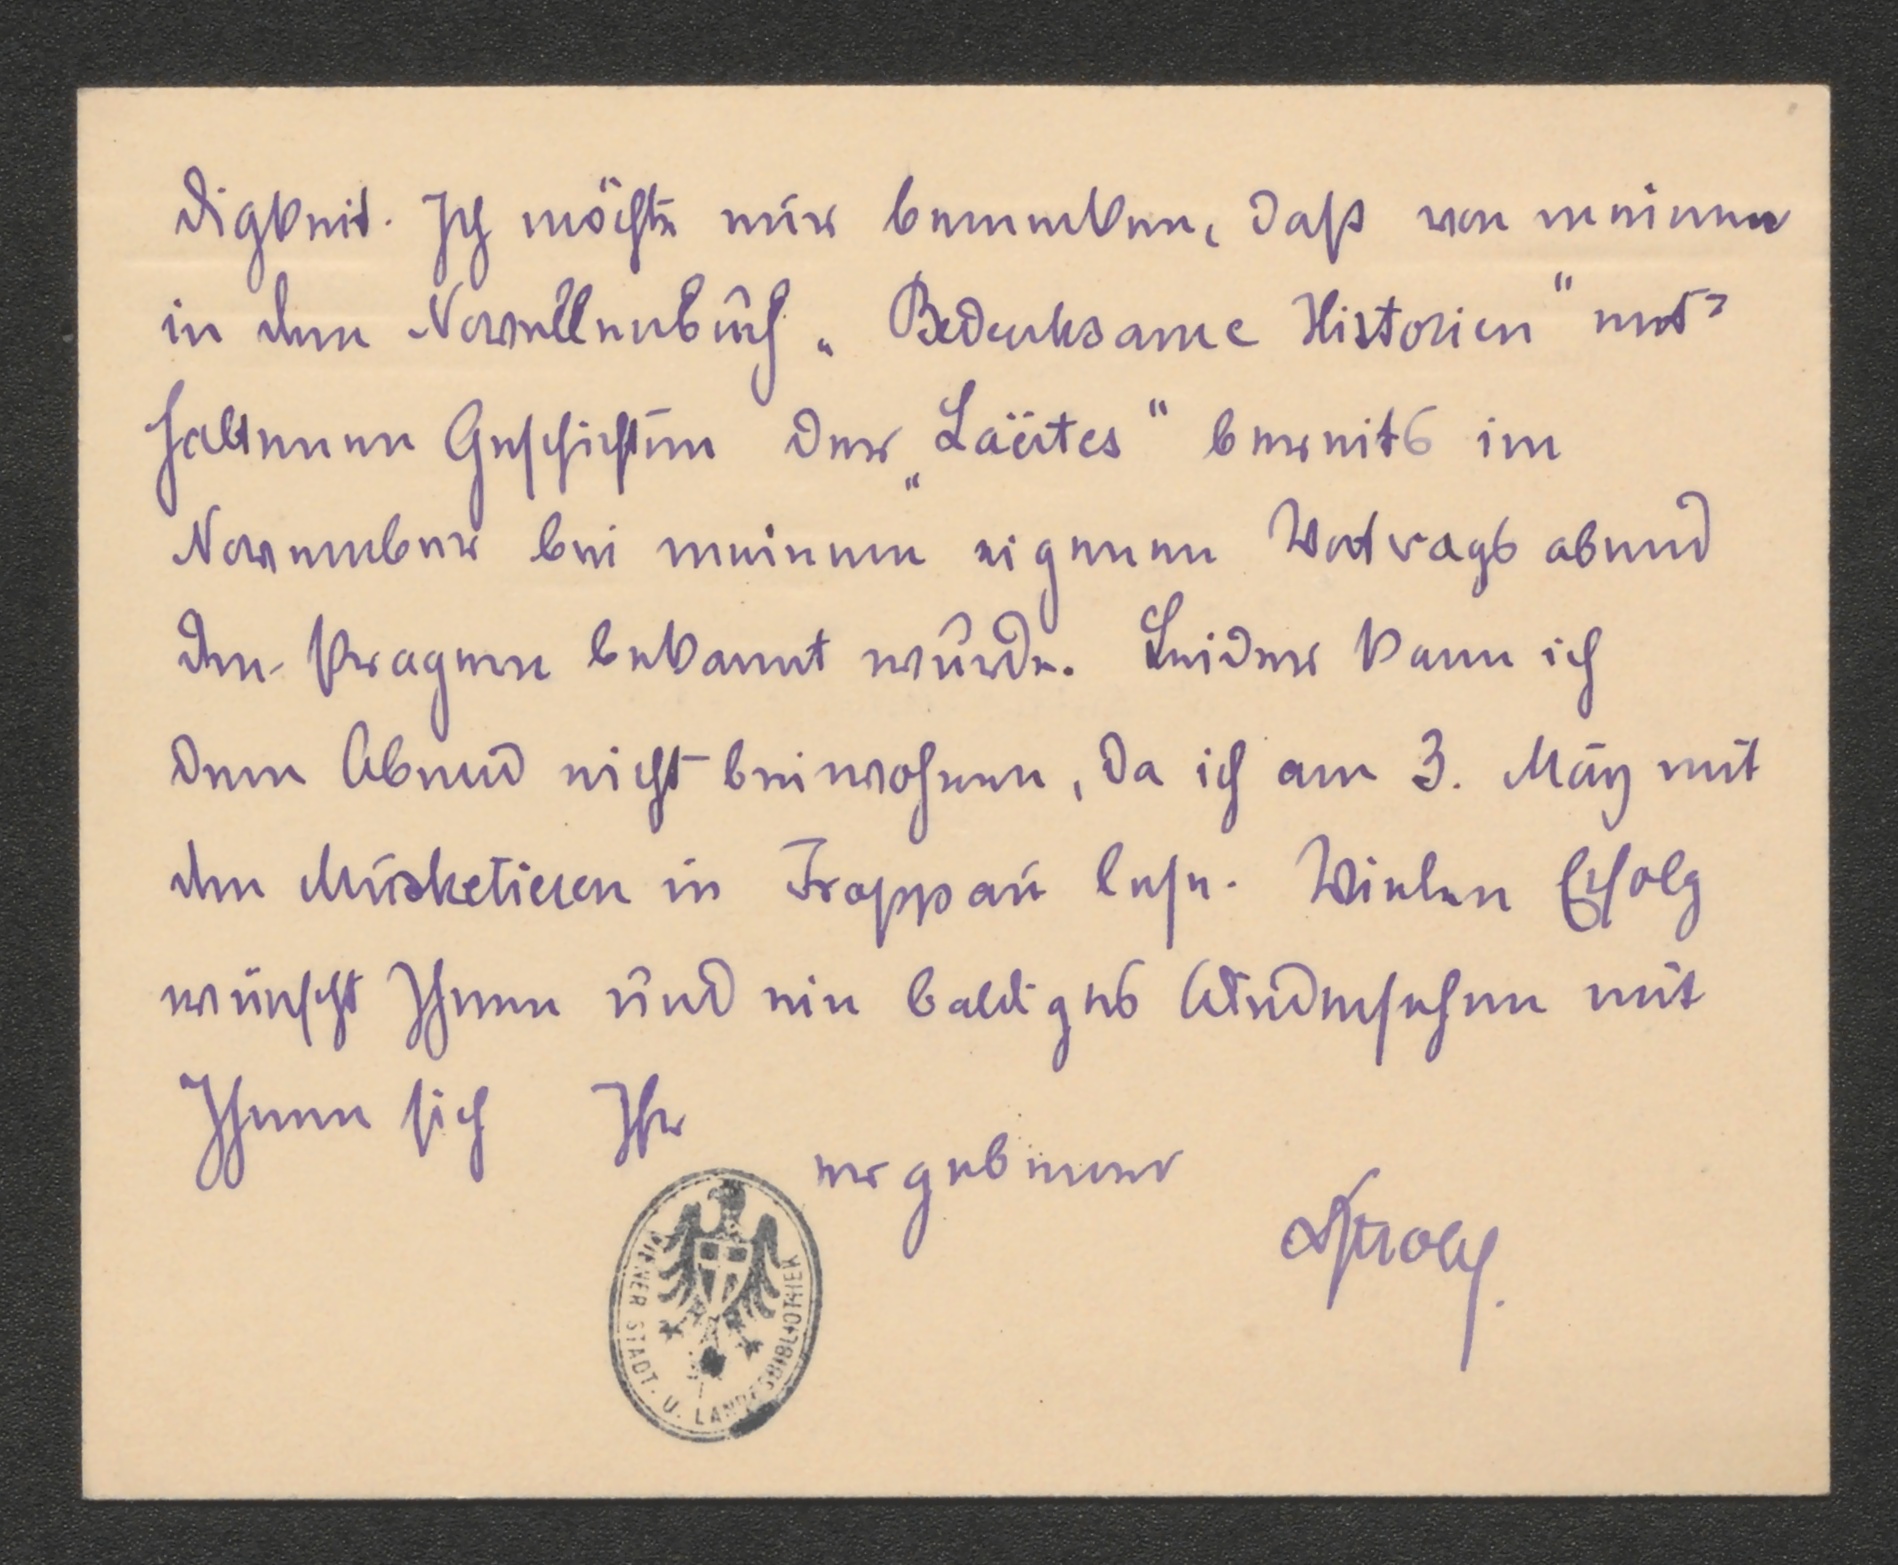 digkeit. Ich möchte nur bemerken, daß von meinen
in dem Novellenbuch „Bedenksame Historien" ent=
haltenen Geschichten der „Laërtes" bereits im
November bei meinem eigenen Vortragsabend
den Pragern bekannt wurde. Leider kann ich
dem Abend nicht beiwohnen, da ich am 3. März mit
den Musketieren in Troppau lese. Vielen Erfolg
wünscht Ihnen und ein baldiges Wiedersehen mit
Ihnen sich Ihr
ergebener
Strobl.
WIENER STADT- U. LANDESBIBLIOTHEK